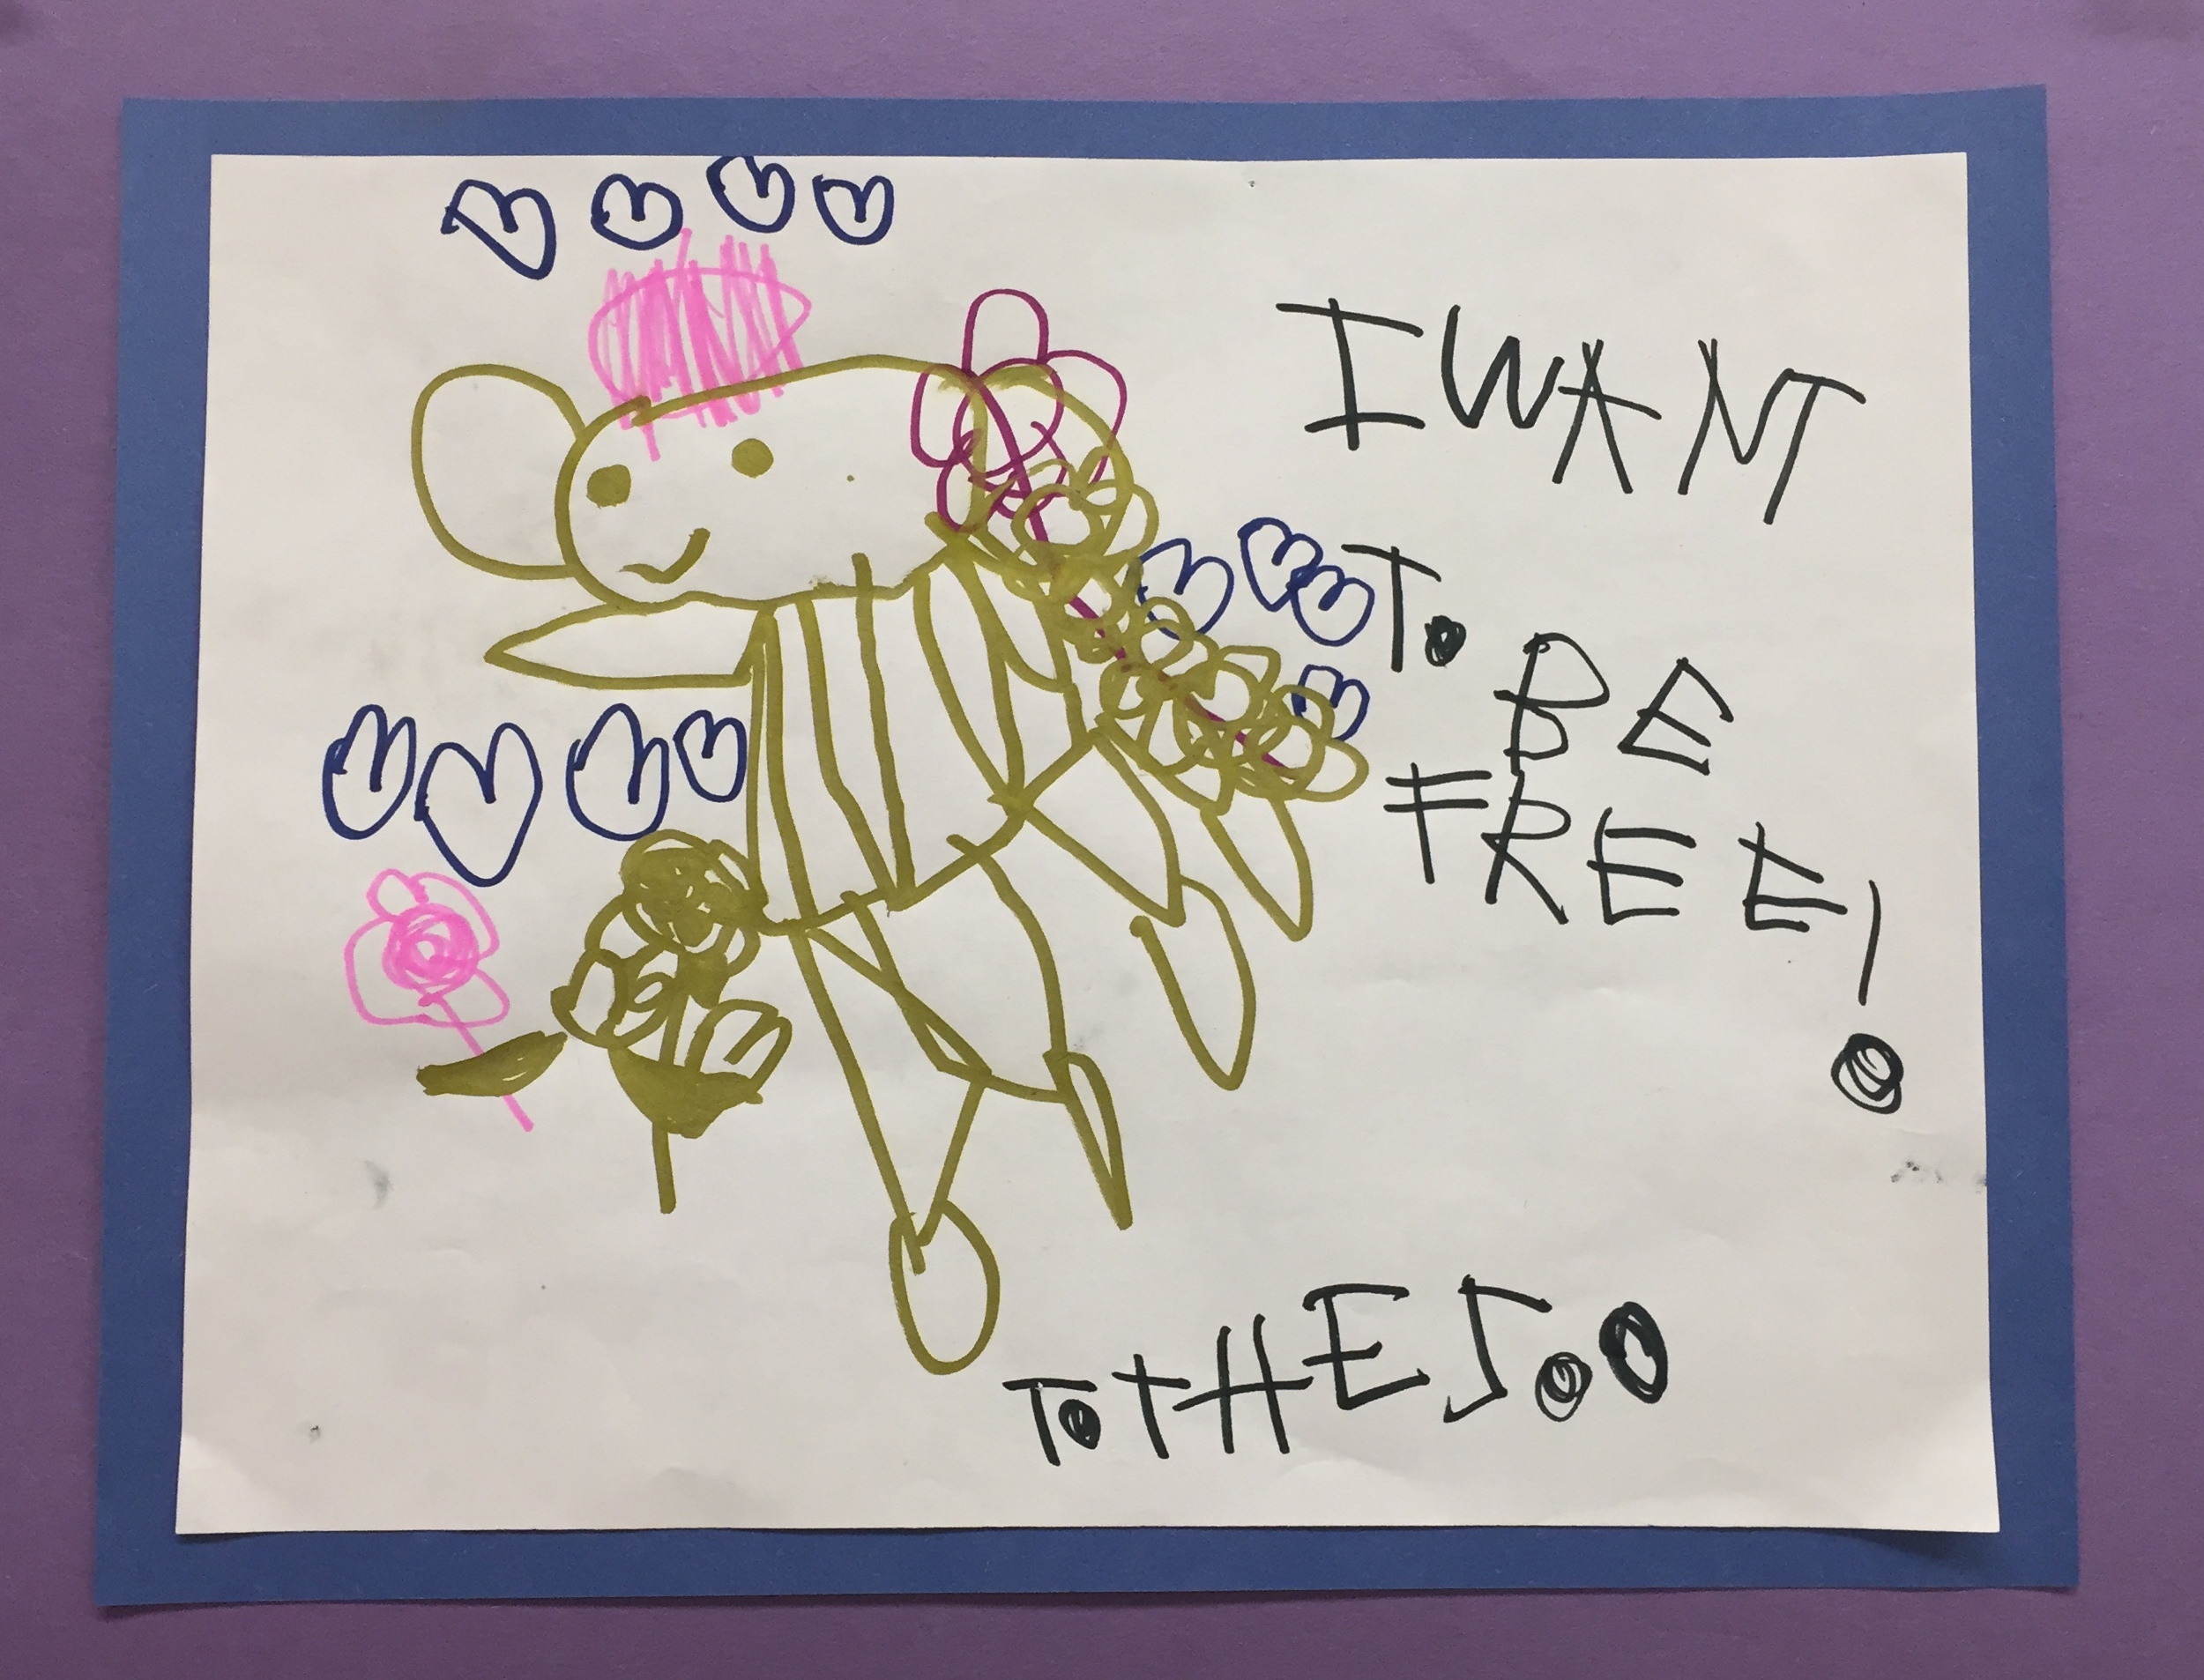 I WANT
TO BE
FREE!
TO THE SOO